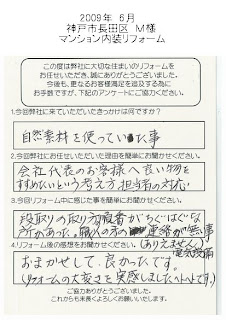 2009年 6月
神戸市長田区 M様
マンション内装リフォーム
この度は弊社に大切な住まいのリフォームを
お任せいただき、誠にありがとうございました。
今後も、更なるお客様満足を追及する為に
お手数ですが、下記のアンケートにご協力ください。
1.今回弊社に来ていただいたきっかけは何ですか?
自然素材を使っていた事
2.今回弊社にお任せいただいた理由を簡単にお聞かせください。
会社代表のお客様へ良い物を
すすめたいという考え方、担当者の対応
3.今回リフォーム中に感じた事を簡単にお聞かせください。
段取りの取り方
所があった。職人の方の 連絡が無い事
(ありえません)
電気設備
4.リフォーム後の感想をお聞かせください。
おまかせして、良かったです。
(リフォームの大変さを実感しました ヘトヘトです。)
ご協力ありがとうございました。
これからも末長くよろしくお願いいたします。